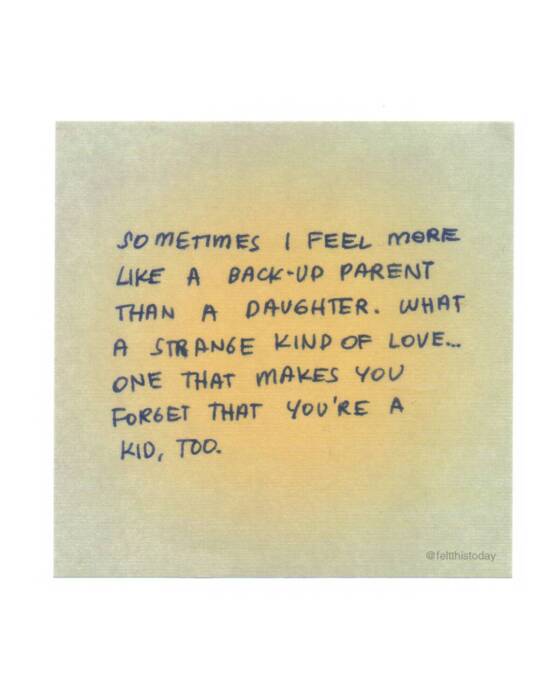 SOMETIMES I FEEL MORE
LIKE A BACK-UP PARENT
THAN A DAUGHTER. WHAT
A STRANGE KIND OF LOVE...
ONE THAT MAKES YOU
FORGET THAT YOU'RE A
KID, TOO.
@feltthistoday